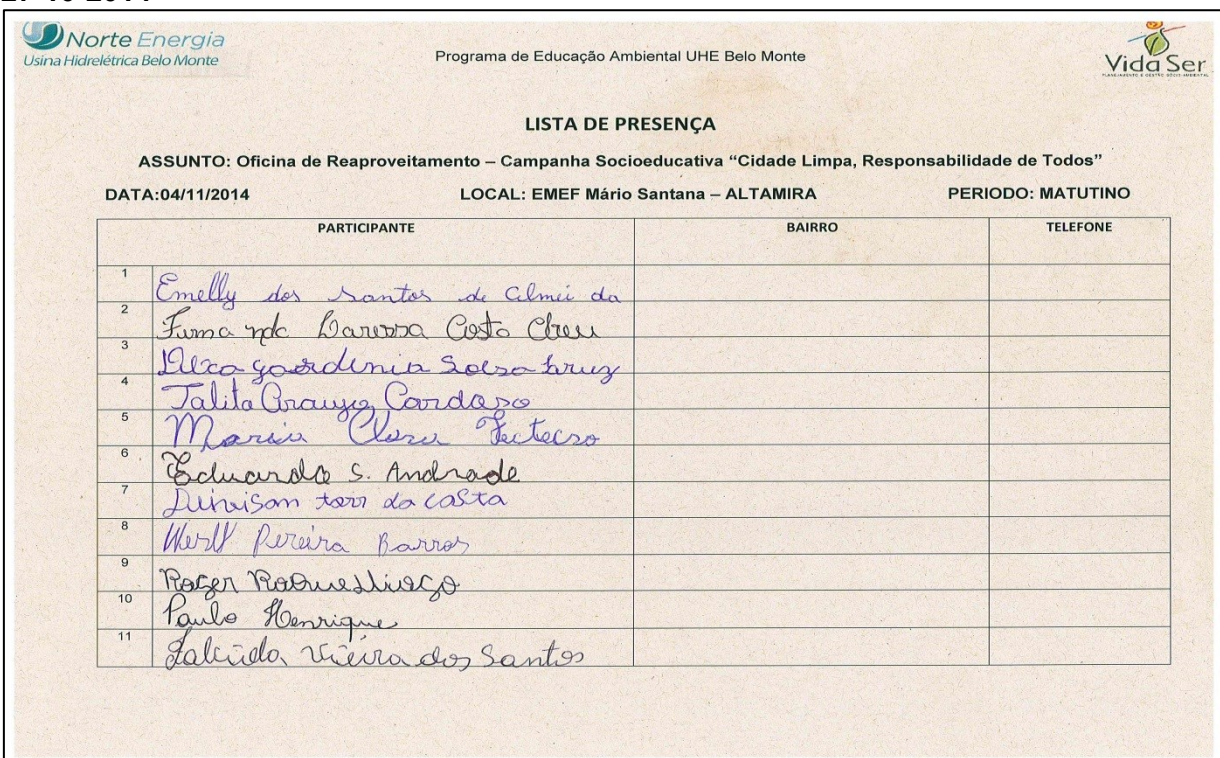 Norte Energia
Usina Hidrelétrica Belo Monte
Programa de Educação Ambiental UHE Belo Monte
Vida Ser
LISTA DE PRESENÇA
ASSUNTO: Oficina de Reaproveitamento – Campanha Socioeducativa “Cidade Limpa, Responsabilidade de Todos”
DATA:04/11/2014 LOCAL: EMEF Mário Santana – ALTAMIRA PERIODO: MATUTINO
PARTICIPANTE BAIRRO TELEFONE
1 Emelly dos Santos de Almei da
2 Costa
3
4 Talita Araujo Cardoso
5 Maria Clara
6 Eduardo S. Andrade
7 da costa
8 Pereira Barros
9 Roger
10 Paulo Henrique
11 Vieira dos Santos